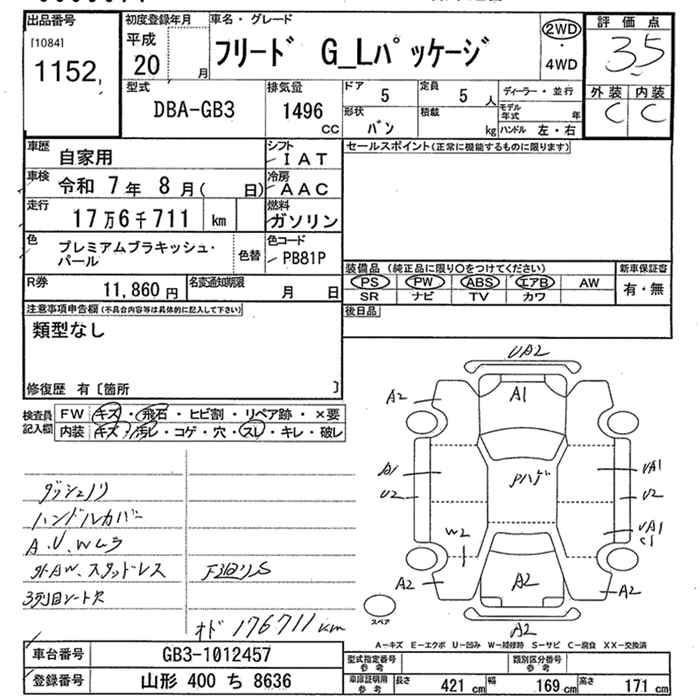 出品番号
[1084]
1152
初度登録年月
平成
20 月
車名・グレード
フリード G_Lパッケージ
2WD
・
4WD
評価点
3.5
外装 内装
C C
型式
DBA-GB3
排気量
1496
CC
ドア
5
定員
5 人
形状
バン
積載
kg
ディーラー・並行
モデル年式 年
ハンドル 左・右
車歴
自家用
シフト
IAT
車検
令和 7年 8月( 日)
冷房
AAC
走行
17万6千711 km
燃料
ガソリン
色
プレミアムブラキッシュ・
パール
色替
色コード
PB81P
R券
11,860円
名変通知期限
月 日
セールスポイント(正常に機能するものに限ります)
装備品 (純正品に限り○をつけてください)
PS PW ABS エアB AW
SR ナビ TV カワ
新車保証書
有・無
後日品
注意事項申告欄(不具合内容等は具体的に記入して下さい)
類型なし
修復歴 有〔箇所 〕
検査員
記入欄
FW キズ・飛石・ヒビ割・リペア跡・×要
内装 キズ・汚レ・コゲ・穴・スレ・キレ・破レ
ダッシュノリ
ハンドルカバー
A.U.Wムラ
外AW.スタッドレス
3列目シート欠
下廻りS
オド 176711km
UA2
A2
A1
A1
U2
Pハゲ
UA1
U2
UA1
C1
W2
A2
A2
A2
A2
スペア
A-キズ E-エクボ U-凹み W-補修跡 S-サビ C-腐食 XX-交換済
車台番号
GB3-1012457
登録番号
山形 400 ち 8636
型式指定番号
参考
類別区分番号
参考
車庫証明用
参考
長さ 421 cm 幅 169 cm 高さ 171 cm